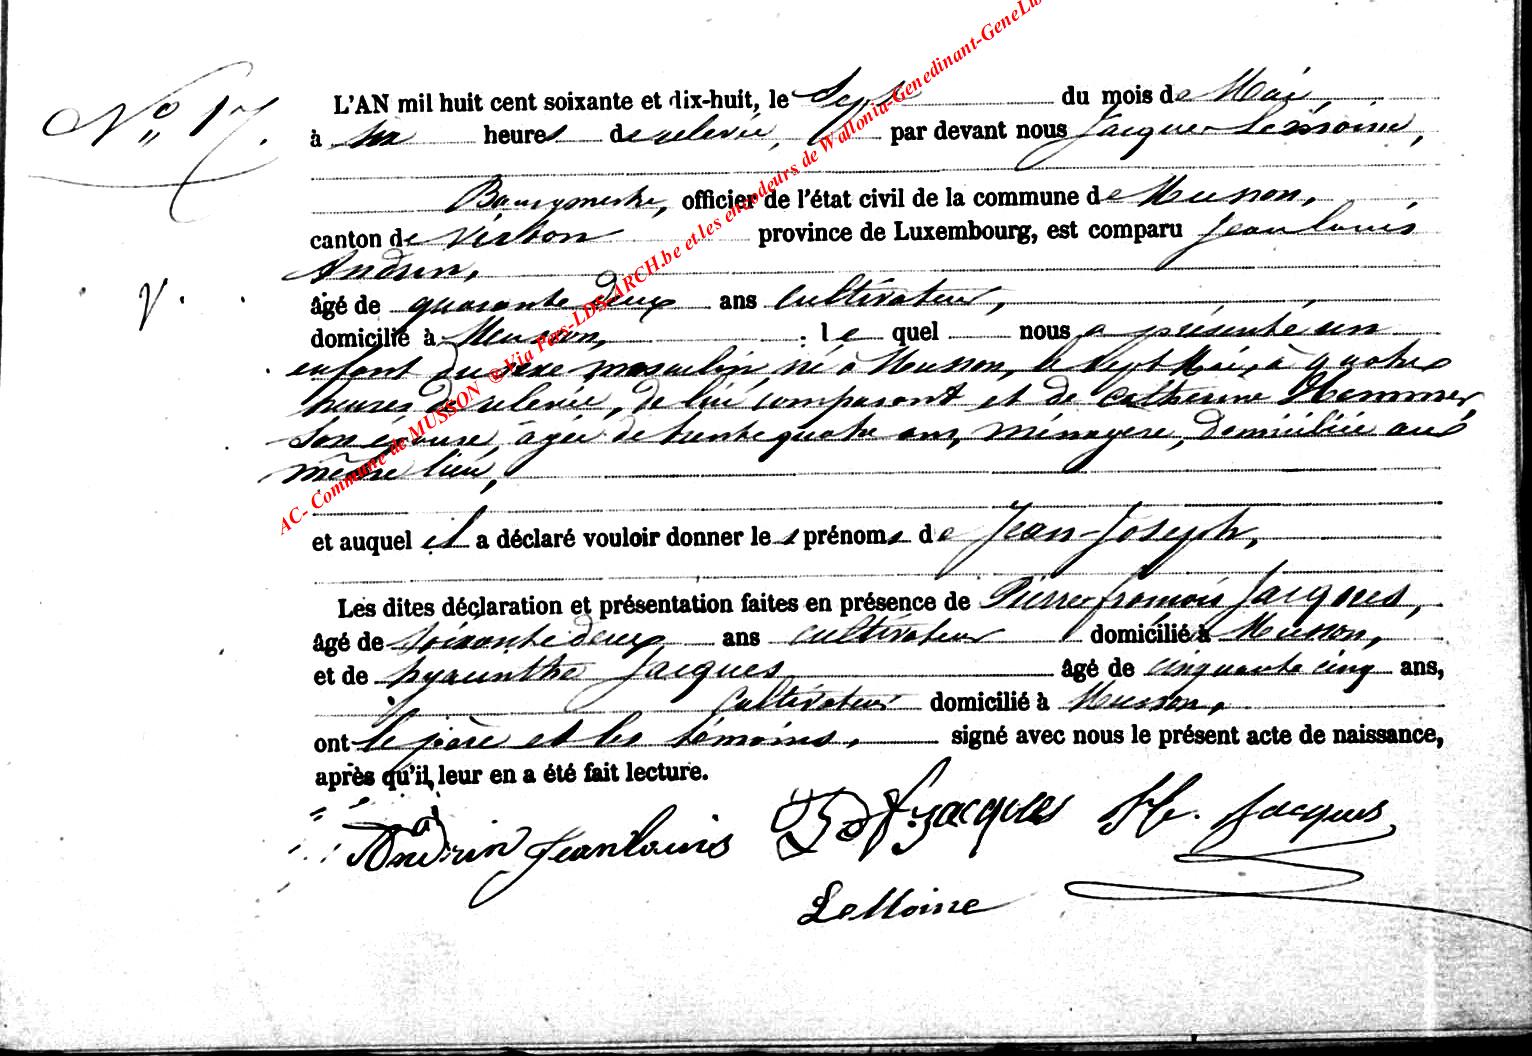 N° 17.
L'AN mil huit cent soixante et dix-huit, le Sept du mois de Mai,
à six heures de relevée, par devant nous Jacques Lemoine,
Bourgmestre, officier de l'état civil de la commune de Musson,
canton de Virton province de Luxembourg, est comparu Jean louis
Andrin,
âgé de quarante deux ans Cultivateur,
V.
domicilié à Musson, : le quel nous a présenté un
enfant du sexe masculin, né à Musson, le sept Mai, à quatre
heures de relevée, de lui comparant et de Catherine Hemmer,
son épouse, âgée de trente quatre ans, ménagère, domiciliée au
même lieu,
et auquel il a déclaré vouloir donner les prénoms de Jean-Joseph,
Les dites déclaration et présentation faites en présence de Pierre françois Jacques,
âgé de soixante deux ans cultivateur domicilié à Musson,
et de hyacinthe Jacques âgé de cinquante cinq ans,
Cultivateur domicilié à Musson,
ont le père et les témoins, signé avec nous le présent acte de naissance,
après qu'il leur en a été fait lecture.
Andrin Jeanlouis P f jacques H. Jacques
LeMoine
AC- Commune de MUSSON © Via Pers-LDS-ARCH.be et les encodeurs de Wallonia-Genedinant-GeneLux